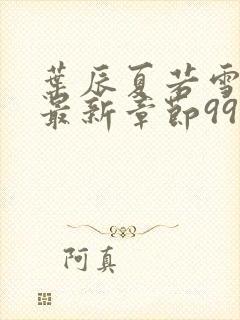 葉辰夏若雪
最新章節99
阿真